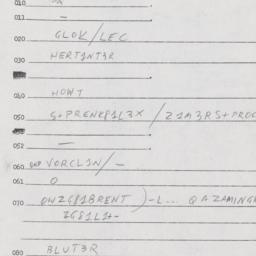 010
011 —
020 GLOK/LEC
030 HERTINT3R
040 HOWT
050 S+PRENK81L3X / Z1M3RS+PROC
052 —
060 VORCL1N/—
061 0
070 OWZG818RENT)-L... QAZAMING
ZG81L1+-
080 BLUT3R